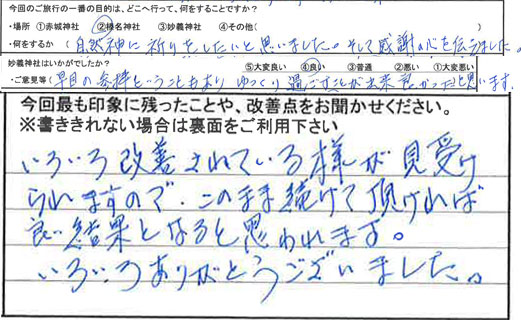 今回のご旅行の一番の目的は、どこへ行って、何をすることですか?
・場所 ①赤城神社 ②榛名神社 ③妙義神社 ④その他( )
・何をするか (自然神に祈りをしたいと思いました。そして感謝の心を伝えました。
妙義神社はいかがでしたか? ⑤大変良い ④良い ③普通 ②悪い ①大変悪い
・ご意見等( 早目の参拝ということもあり ゆっくり過ごすことが出来良かったと思います.
今回最も印象に残ったことや、改善点をお聞かせください。
※書ききれない場合は裏面をご利用下さい
いろいろ改善されている様が見受け
られますので、このまま続けて頂ければ
良い結果となると思われます。
いろいろありがとうございました。